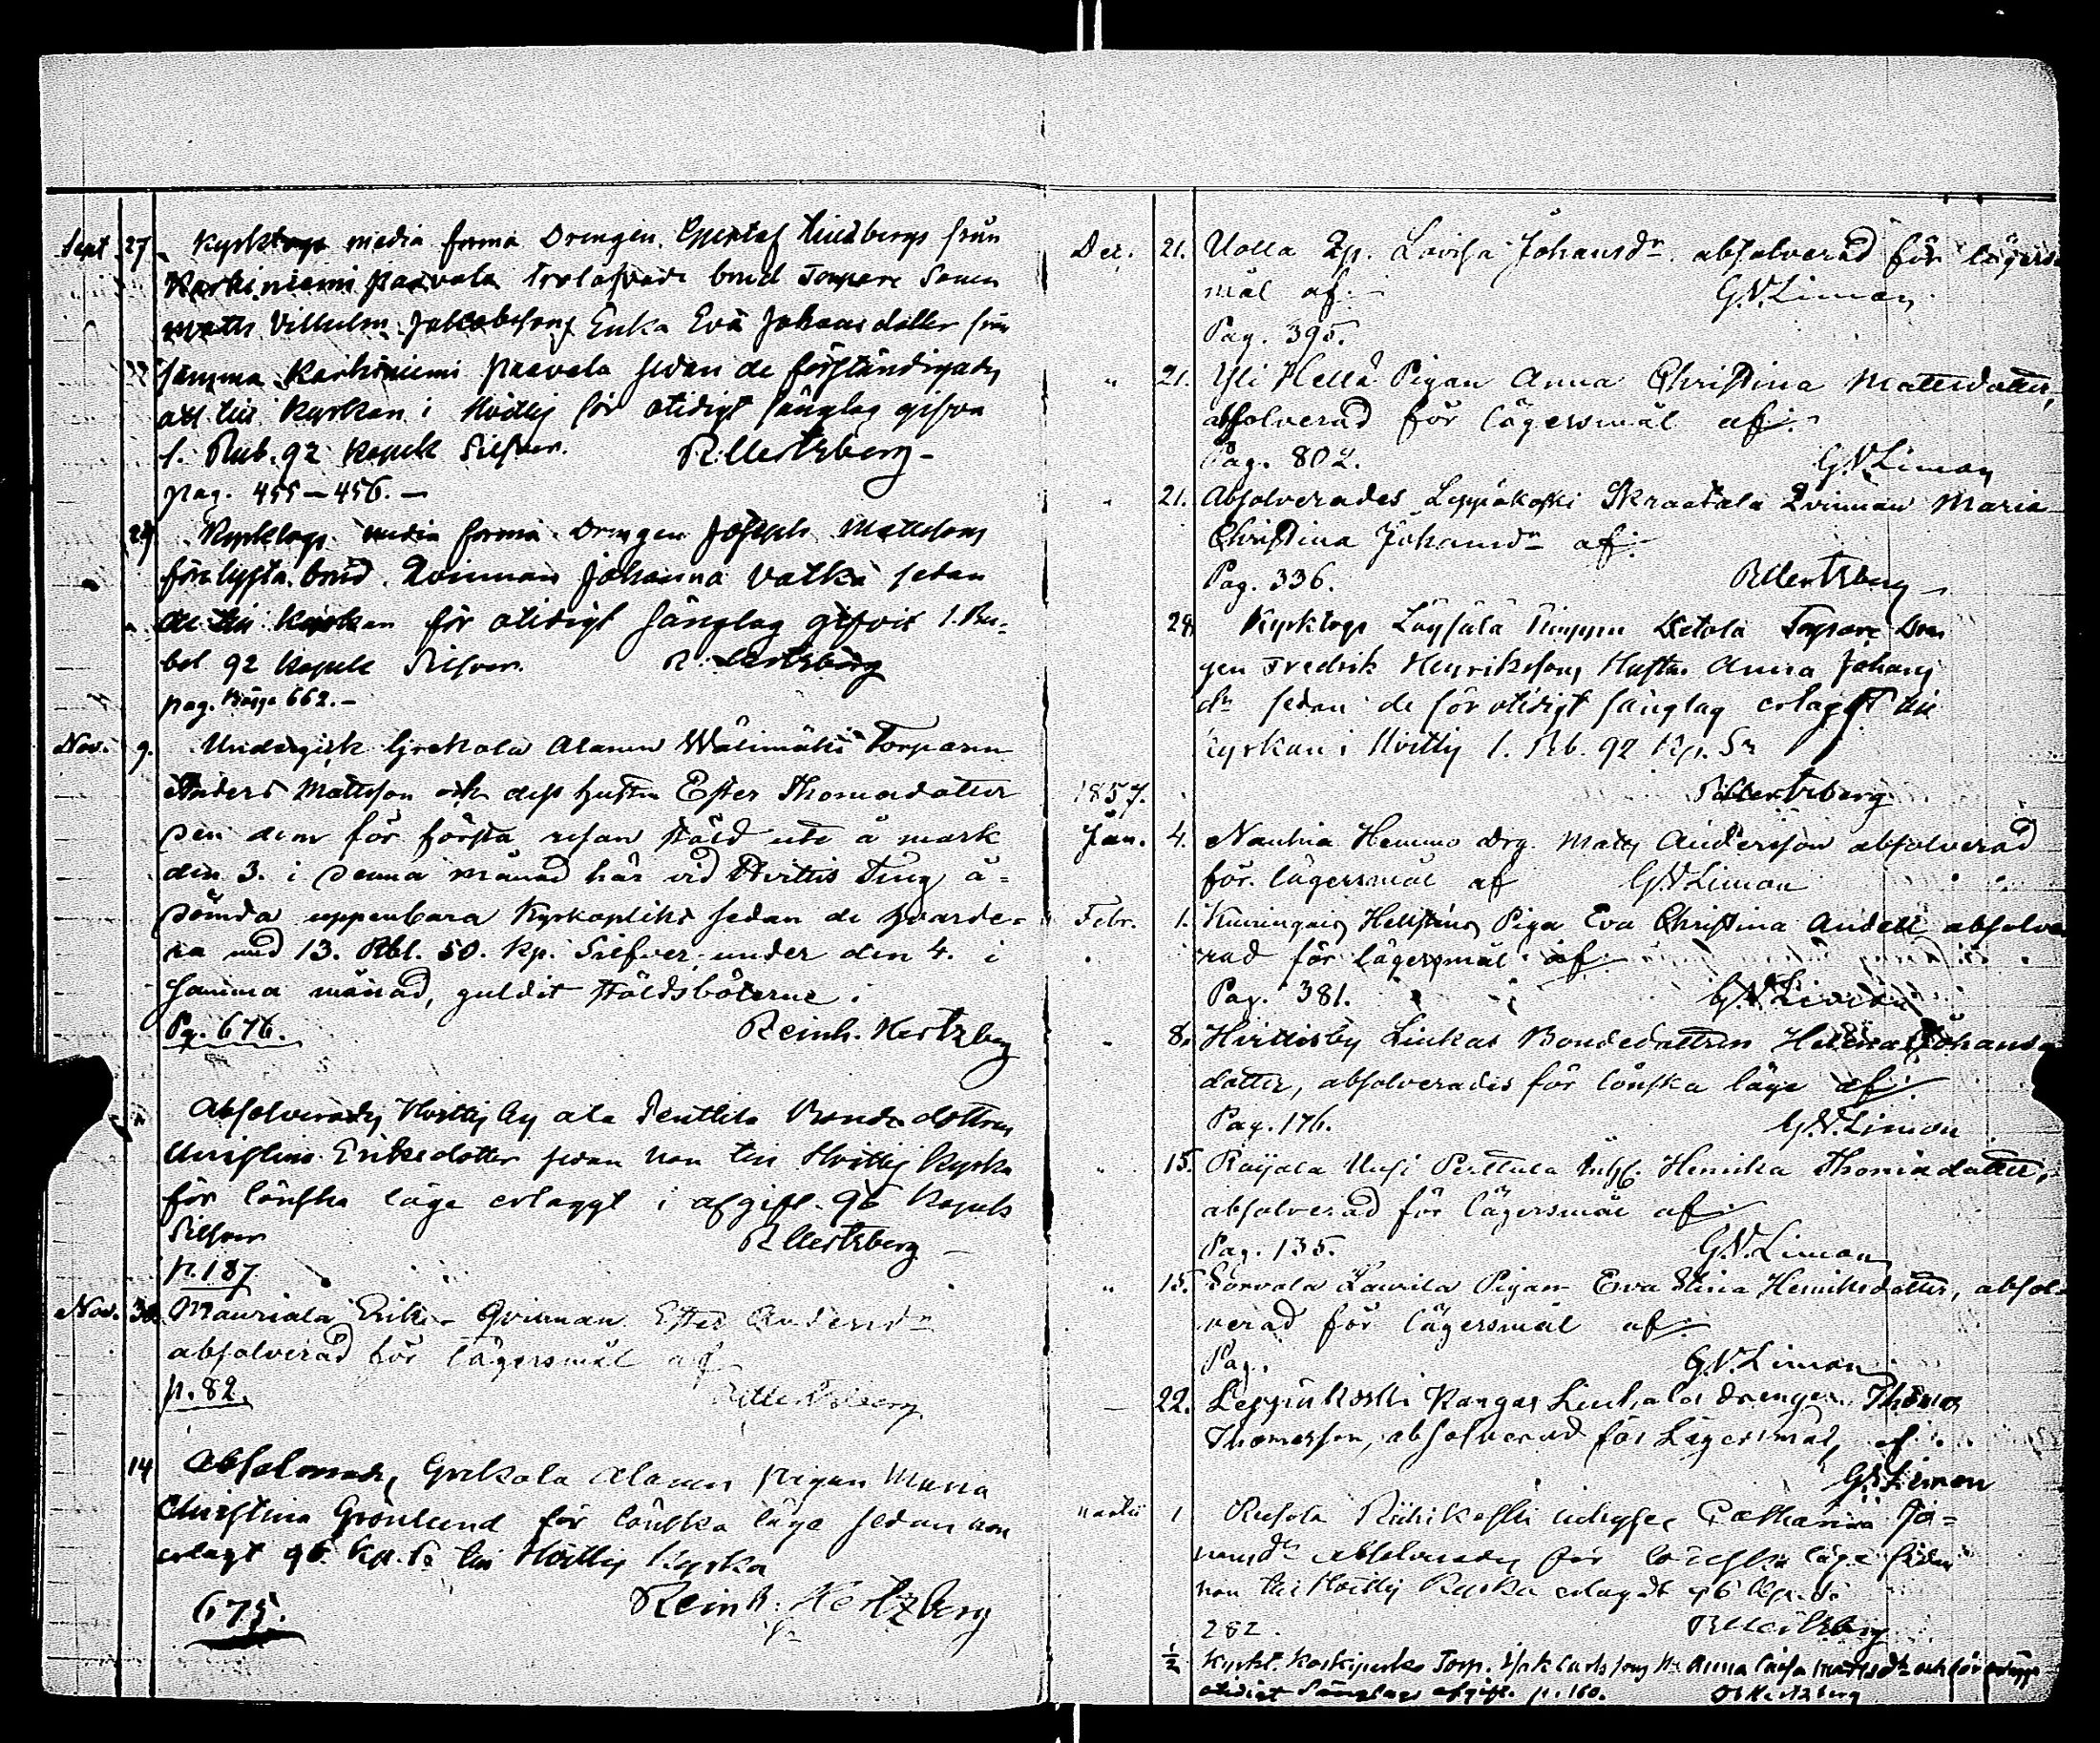 Sept. 27. Kyrktogs media forma Drengen Gustaf Lindbergs från
Karhiniemi Paavola trolofvade brud Torpare Sonen
Matts Vilhelm Jakobssons Enka Eva Johansdotter från
samma Karhiniemi Paavola sedan de förständigades
att till Kyrkan i Hvittis för otidigt sänglag gifva
1. Rub. 92 Kopek Silfver. R Hertzberg
pag. 455-456.
Kyrktogs media forma Drengen Josephs Mattssons
brud Qvinnan Johanna Valkå sedan
de till Kyrkan för otidigt sänglag gifvit 1. Ru-
bel 92 Kopek Silfver. R. Hertzberg
pag. 662.
Nov. 9. Undergick Grekola Alanen Wälimäki Torparen
Anders Mattsson och dess hustru Ester Thomasdotter
den dem för första resan stöld ute å mark
den 3. i denna månad här vid Hvittis Ting å-
dömda uppenbara Kyrkoplikt sedan de hvarde-
ra med 13. Rbl. 50. Kp. Silfver under den 4. i
samma månad, guldit stöldsböterne.
Pg. 676. Reinh. Hertzberg
Absolverades Hvittis by Ala Penttila Bonde dottren
Christina Eriksdotter sedan hon till Hvittis Kyrka
för lönska läge erlaggt i afgift 96 Kopek
Silfver R Hertzberg
p. 187
Nov. 30. Mauriala Erik Qvinnan Ester Andersdr
absolverad för lägersmål af
p. 82. R Hertzberg
14 Absolverades Grekola Alanen pigan Maria
Christina Grönlund för lönska läge sedan hon
erlagt 96 Kp. S. till Hvittis Kyrka
675. Reinh. Hertzberg
Dec. 21. Uolla Qp. Lovisa Johansdr. absolverad för lägers-
mål af G.V. Liman
Pag. 395.
" 21. Yli Hella Pigan Anna Christina Mattsdotter,
absolverad för lägersmål af
Pag. 802. G.V. Liman
21. Absolverades Leppäkoski Skraatala Qvinnan Maria
Christina Johansdr af
Pag. 336. R Hertzberg
28 Kyrktogs Torpare Dren
gen Fredrik Henrikssons Hustru Anna Johans
dr sedan de för otidigt sänglag erlaggt till
Kyrkan i Hvittis 1. Rb. 92 Kp. Sr
1857. R Hertzberg
Jan. 4. Nauhia Hemmo drg. Matts Andersson absolverad
för lägersmål af G.V. Liman
Febr. 1. Piga Eva Christina Andell absolve
rad för lägersmål af
Pag. 381. G.V. Liman
" 8. Hvittisby Liukas Bondedottren Helena Johans
dotter, absolverades för lönska läge af
Pag. 176. G.V. Liman
" 15. Raijala Uusi Perttula Inhs. Henrika Thomasdotter,
absolverad för lägersmål af
Pag. 135. G.V. Liman
" 15. Sorvola Laurila Pigan Eva Stina Henriksdotter, absol-
verad för lägersmål af
Pag. G.V. Liman
22. Leppäkoski Kangas drengen Thomas
Thomasson, absolverad för Lägersmål, af
G.V. Liman
Martii 1 inhyses Catharina Jo-
hansdr absolverades för lönska läge sedan
hon till Hvittis Kyrka erlagdt 96 Kp. S.
282. R Hertzberg
Kyrkt. Torp. Isak Carlssons H. Anna Caisa Mattsdr
otidigt sänglags afgift. p. 160. R Hertzberg